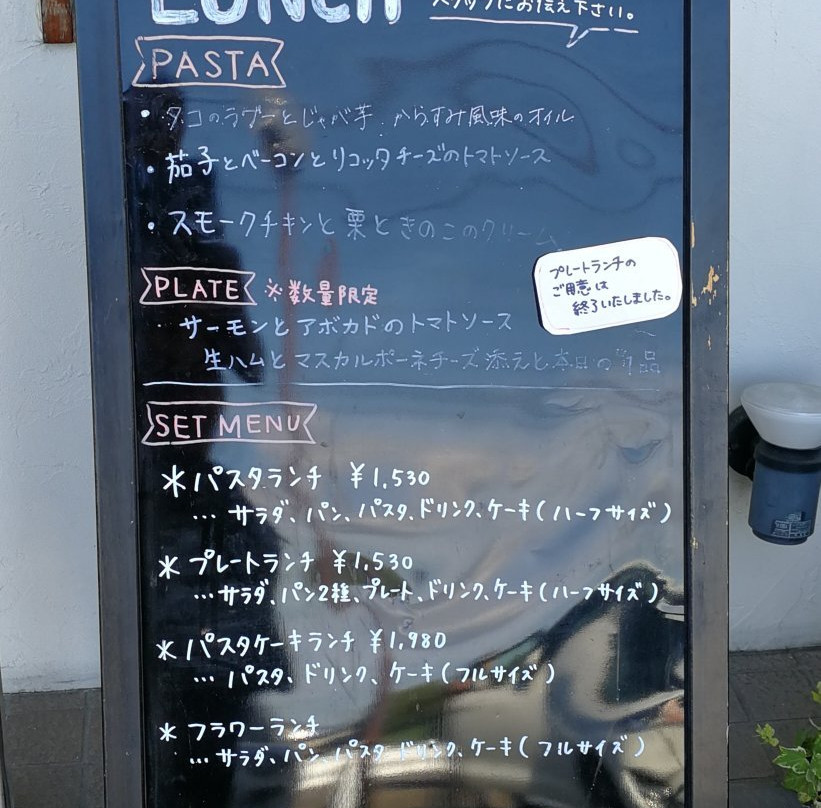 LUNCH
スタッフにお伝え下さい。
PASTA
・タコのラグーとじゃが芋 からすみ風味のオイル
・茄子とベーコンとリコッタチーズのトマトソース
・スモークチキンと栗ときのこのクリーム
PLATE ※数量限定
プレートランチの
ご用意は
終了いたしました。
サーモンとアボカドのトマトソース
生ハムとマスカルポーネチーズ添えと本日の 品
SET MENU
＊パスタランチ ¥1,530
… サラダ、パン、パスタ、ドリンク、ケーキ(ハーフサイズ)
＊プレートランチ ¥1,530
…サラダ、パン2種、プレート、ドリンク、ケーキ(ハーフサイズ)
＊パスタケーキランチ ¥1,980
… パスタ、ドリンク、ケーキ(フルサイズ)
＊フラワーランチ
… サラダ、パン、パスタ、ドリンク、ケーキ(フルサイズ)